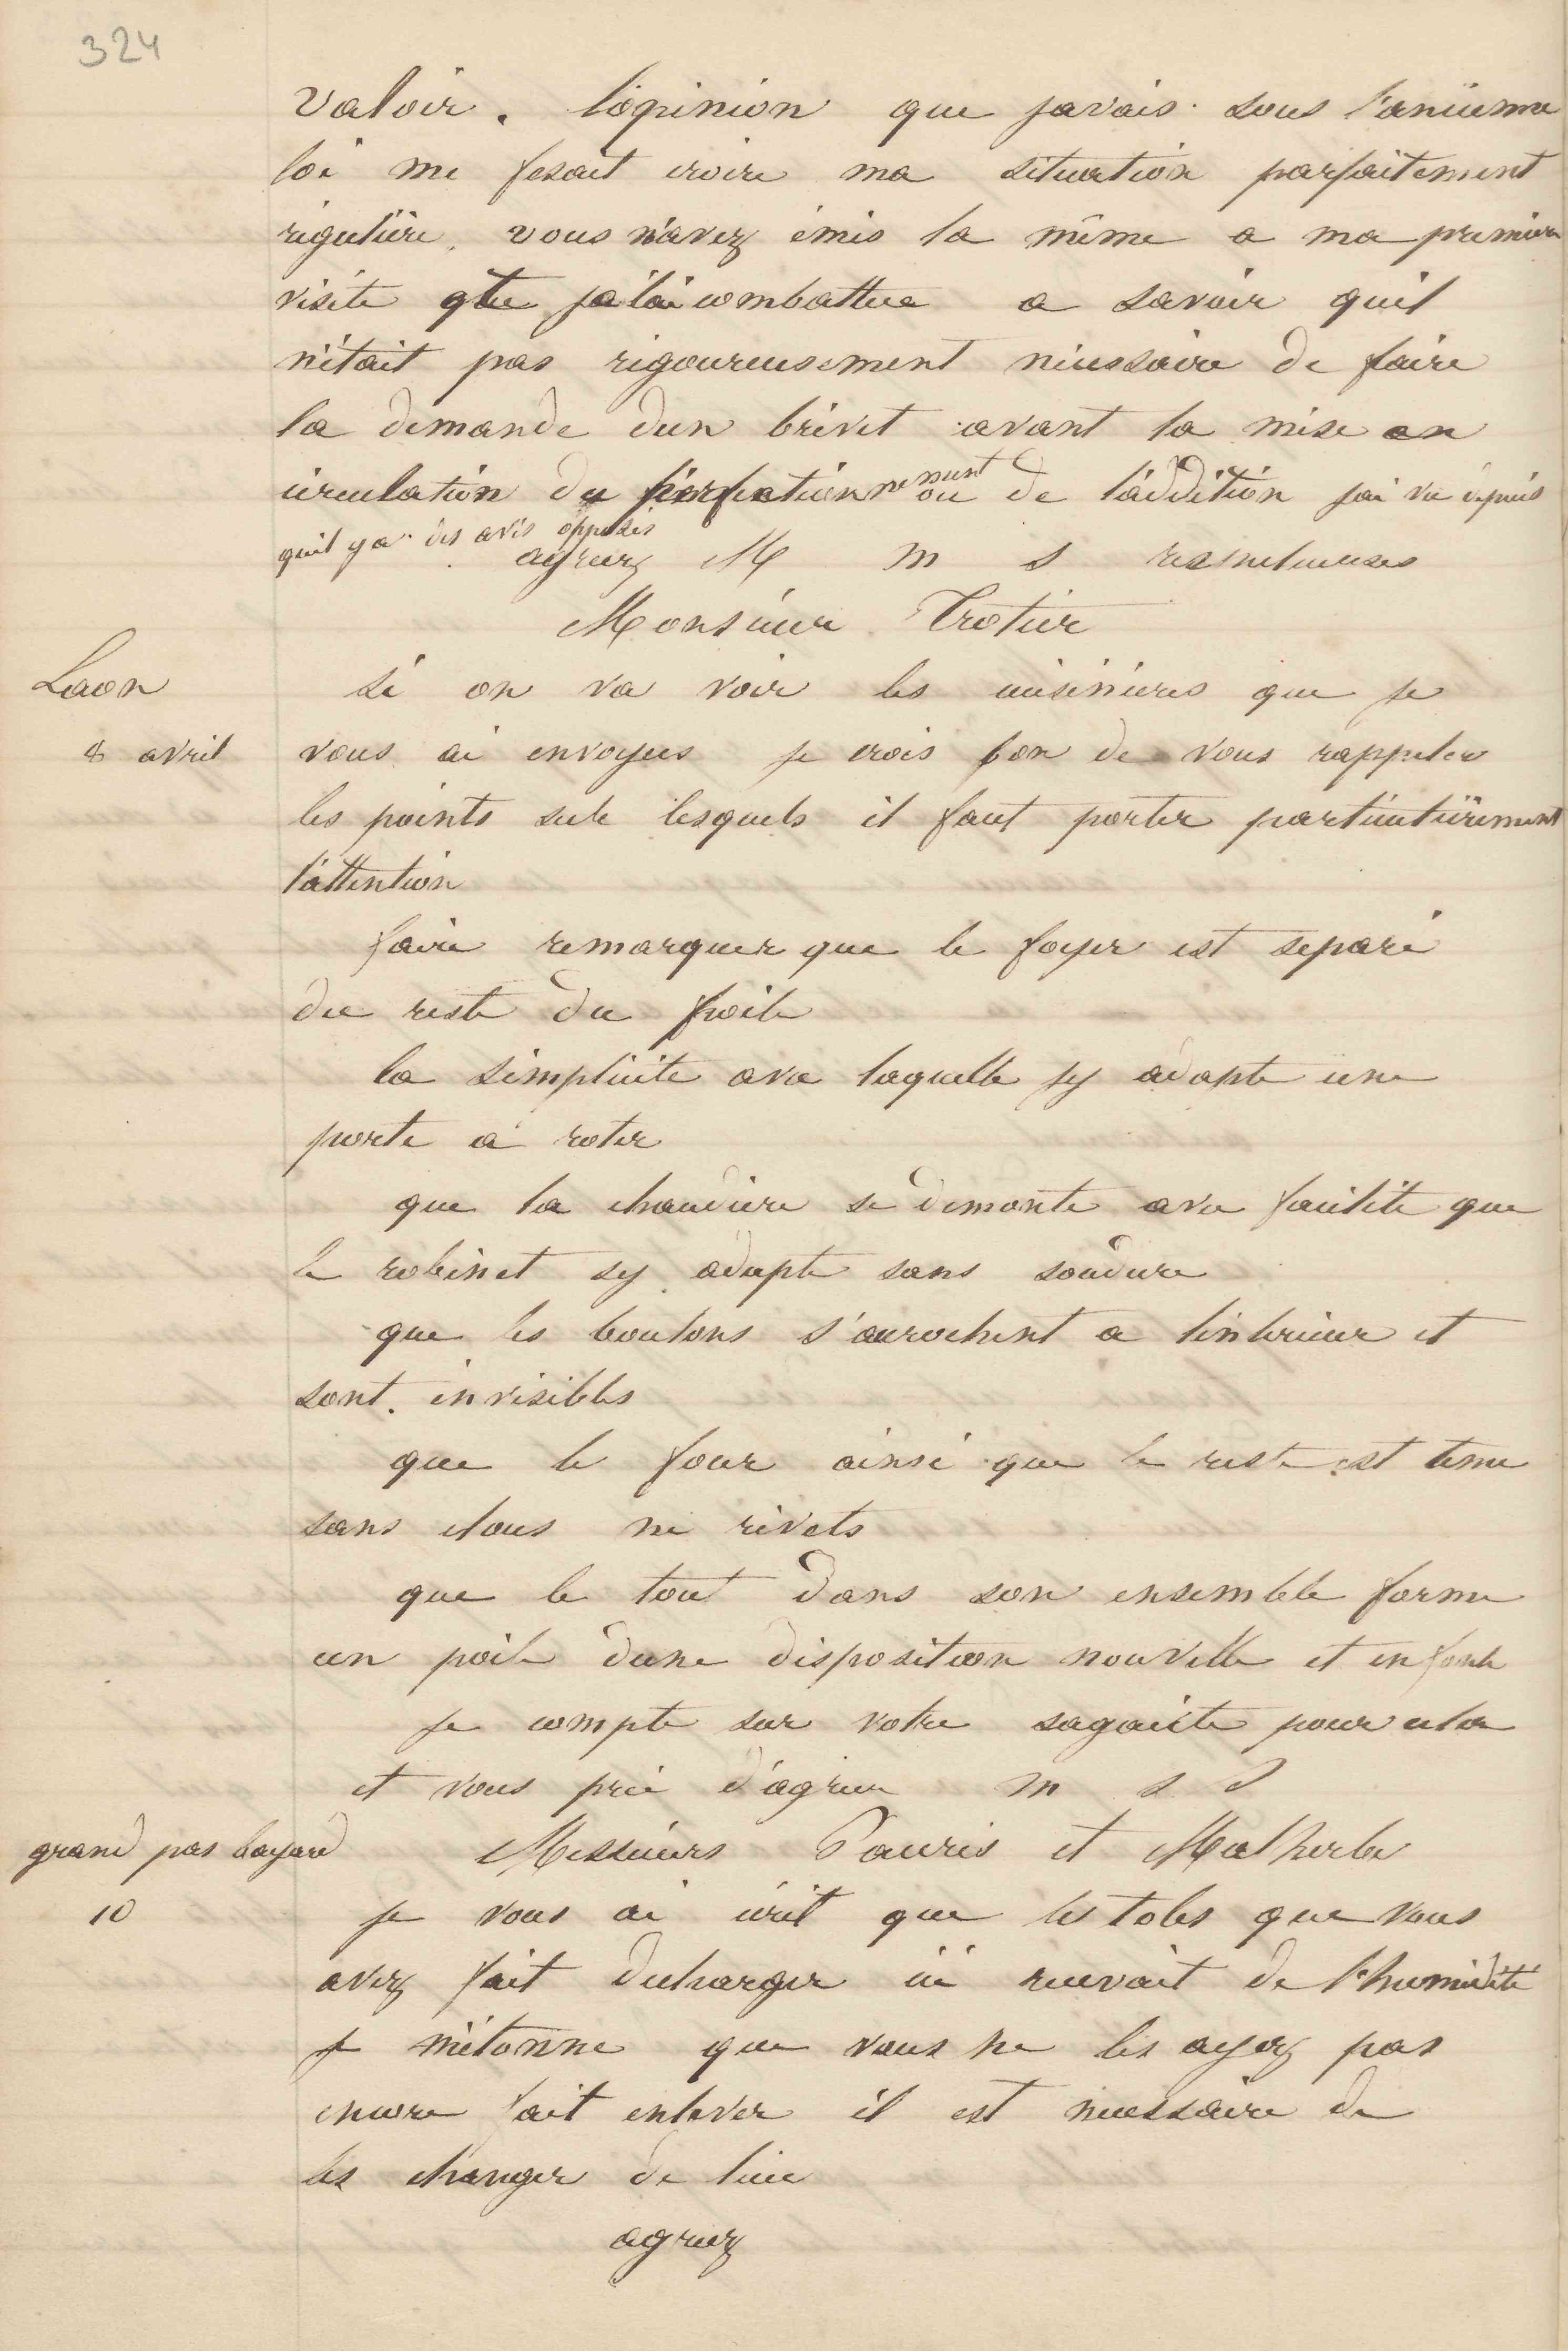 324
valoir. lopinion que javais sous l'ancienne
loi me fesait croire ma situation parfaitement
régulière. vous m'avez émis la même a ma première
visite que je l'ai combattue a savoir quil
n'était pas rigoureusement nécessaire de faire
la demande dun brevet avant la mise en
circulation du perfectionnement ou de l'addition jai vu depuis
quil y a des avis opposés
agréez M m s respectueuses
Monsieur Trotier
Laon
si on va voir les cuisinières que je
8 avril
vous ai envoyées je crois bon de vous rappeler
les points sur lesquels il faut porter particulièrement
l'attention
faire remarquer que le foyer est separé
du reste du poële
la simplicite avec laquelle sy adapte une
porte a rotir
que la chaudiere se demonte avec facilite que
le robinet sy adapte sans soudure
que les boulons s'accrochent a linterieur et
sont invisibles
que le four ainsi que le reste est tenu
sans clous ni rivets
que le tout dans son ensemble forme
un poële dune disposition nouvelle et en fonte
je compte sur votre sagacité pour cela
et vous prie d'agréer m s d
grand pas bayard
Messieurs Pauris et Malherbe
10
je vous ai écrit que les toles que vous
avez fait decharger ici recevait de l'humidité
je m'étonne que vous ne les ayez pas
encore fait enlever il est necessaire de
les changer de lieu
agreez